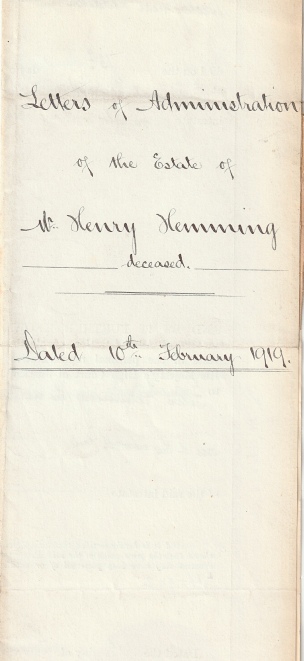 Letters of Administration
of the Estate of
Mr. Henry Hemming
deceased.
Dated 10th February 1919.